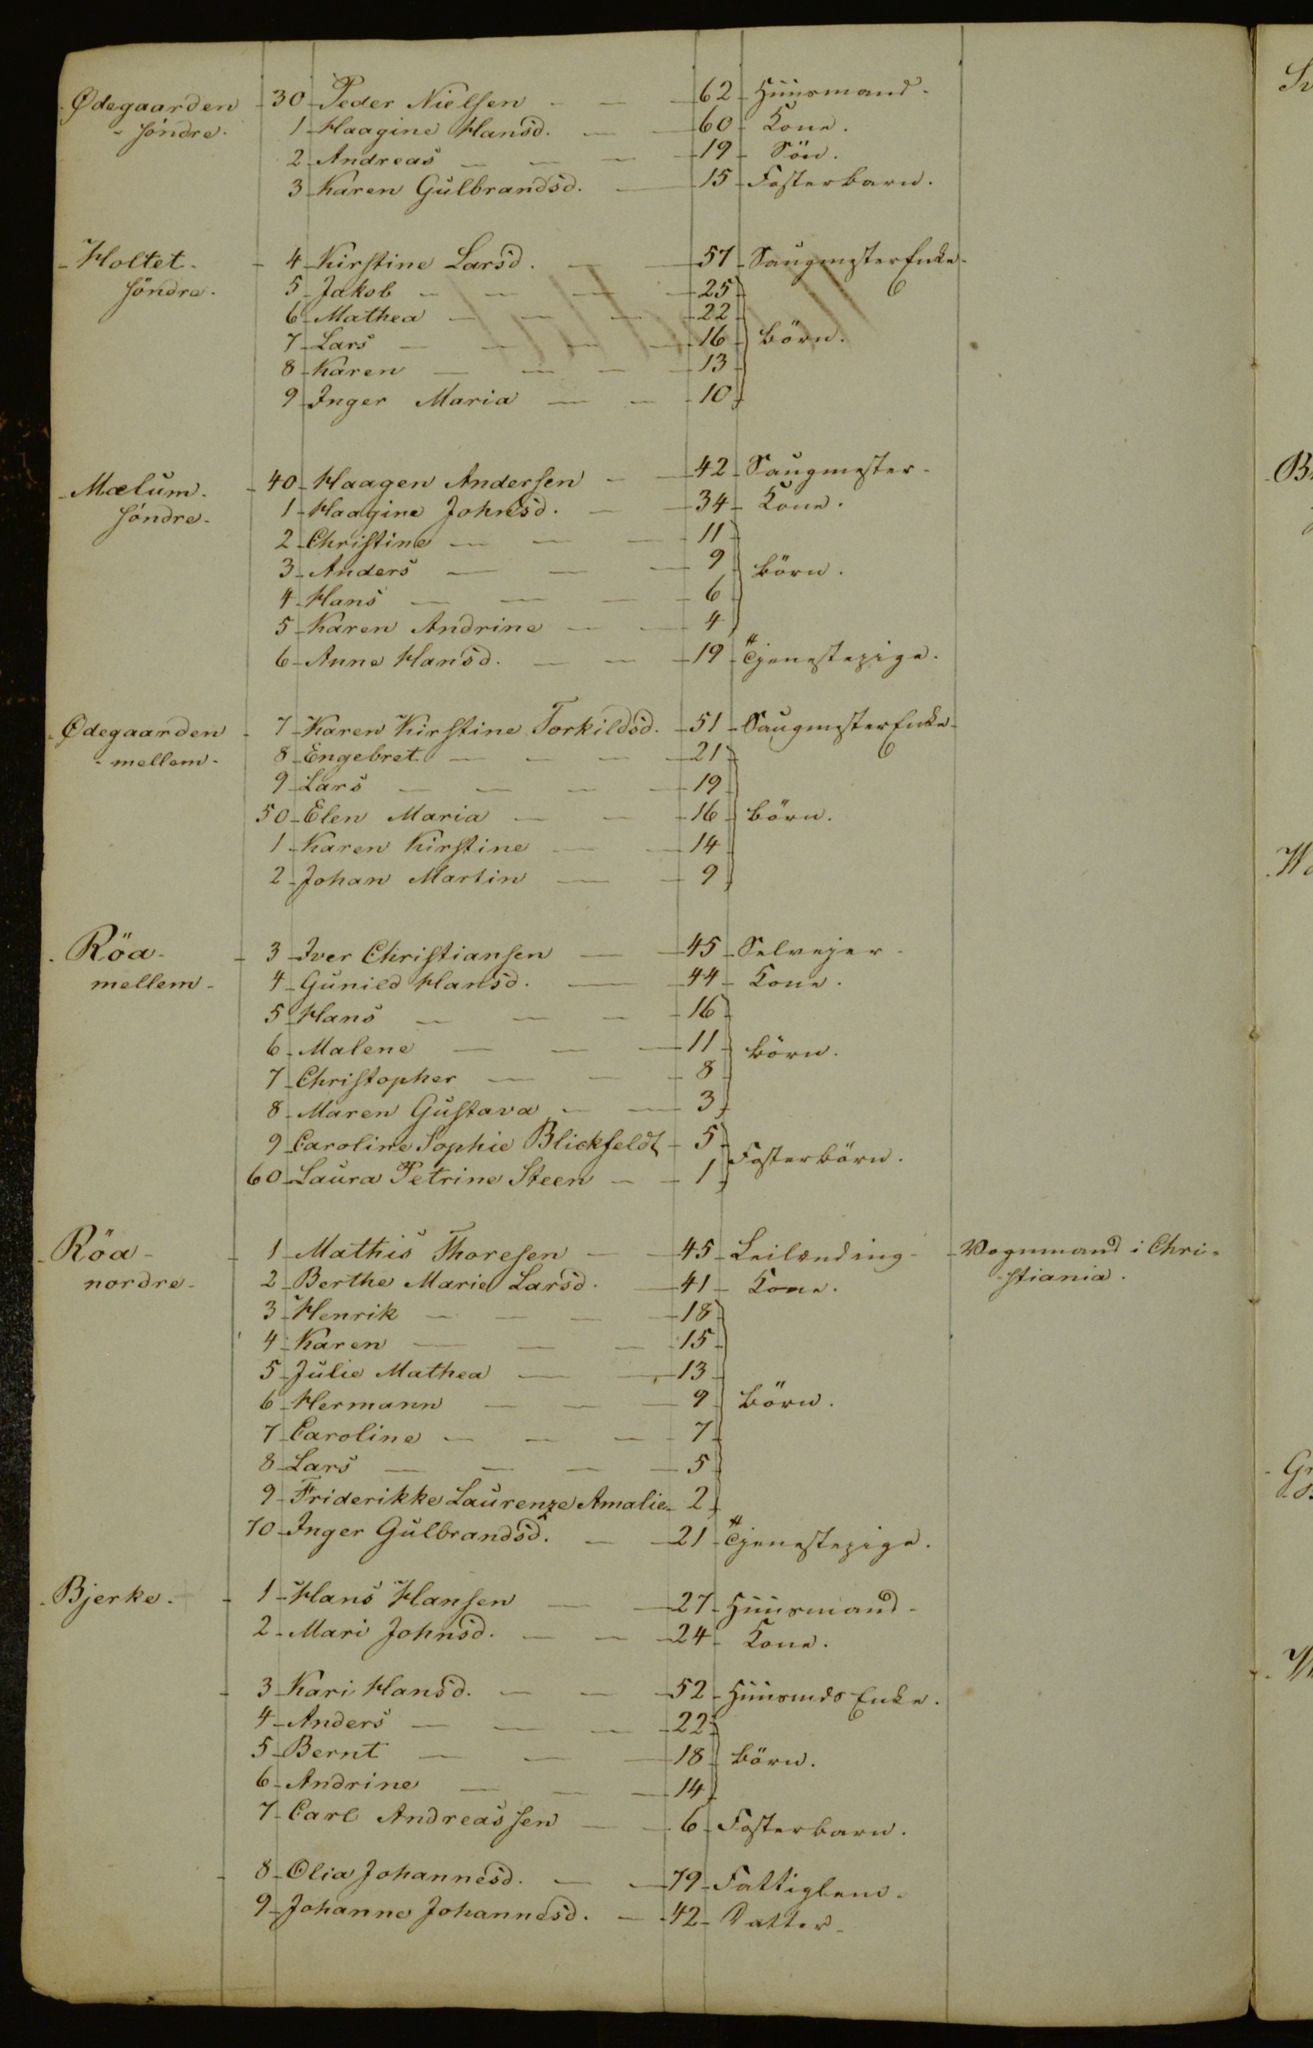 Ødegaarden - 30 - Peder Nielsen - - 62 - Huusmand.
- söndre. 1 - Haagine Hansd. - - 60 - Kone.
2 - Andreas - - - 19 - Sön.
3 - Karen Gulbrandsd. - 15 - Fosterbarn.
- Holtet. - 4 - Kirstine Larsd. - - 57 - Saugmester Enke -
söndre. 5 - Jakob - - - - 25 -
6 - Mathea - - - 22 -
7 - Lars - - - - 16 - börn.
8 - Karen - - - - 13 -
9 - Inger Maria - - - 10 -
- Mælum. - 40 - Haagen Andersen - - 42 - Saugmester -
söndre. 1 - Haagine Johnsd. - - 34 - Kone.
2 - Christine - - - 11 -
3 - Anders - - - 9 - börn.
4 - Hans - - - 6
5 - Karen Andrine - - 4
6 - Anne Hansd. - - - 19 - Tjenestepige.
- Ødegaarden - 7 - Karen Kirstine Torkildsd. - 51 - Saugmester Enke -
- mellem - 8 - Engebret - - - - 21 -
9 - Lars - - - - 19 -
50 - Elen Maria - - - 16 - börn.
1 - Karen Kirstine - - 14 -
2 - Johan Martin - - 9 -
. Röa - - 3 - Iver Christiansen - - 45 - Selvejer -
mellem - 4 - Gunild Hansd. - - 44 - Kone.
5 - Hans - - - - 16 -
6 - Malene - - - 11 - börn.
7 - Christopher - - - 8 -
8 - Maren Gustava - - 3 -
9 - Caroline Sophie Blickfeldt - 5 -
60 - Laura Petrine Steen - - 1 - Fosterbörn.
- Röa - - 1 - Mathis Thoresen - - 45 - Leilænding - - Vognmand i Chri-
nordre - 2 - Berthe Marie Larsd. - 41 - Kone. stiania.
3 - Henrik - - - - 18 -
4 - Karen - - - 15 -
5 - Julie Mathea - - 13 -
6 - Hermann - - - 9 - börn.
7 - Caroline - - - 7 -
8 - Lars - - - - 5 -
9 - Friderikke Laurenze Amalie - 2 -
70 - Inger Gulbrandsd. - - 21 - Tjenestepige.
- Bjerke. - 1 - Hans Hansen - - 27 - Huusmand -
2 - Mari Johnsd. - - - 24 - Kone.
- 3 - Kari Hansd. - - - 52 - Huusmds Enke.
4 - Anders - - - 22 -
5 - Bernt - - - 18 - börn.
6 - Andrine - - - 14 -
7 - Carl Andreassen - - 6 - Fosterbarn.
- 8 - Olia Johannesd. - - 79 - Fattiglem -
9 - Johanne Johannesd. - 42 - Datter -